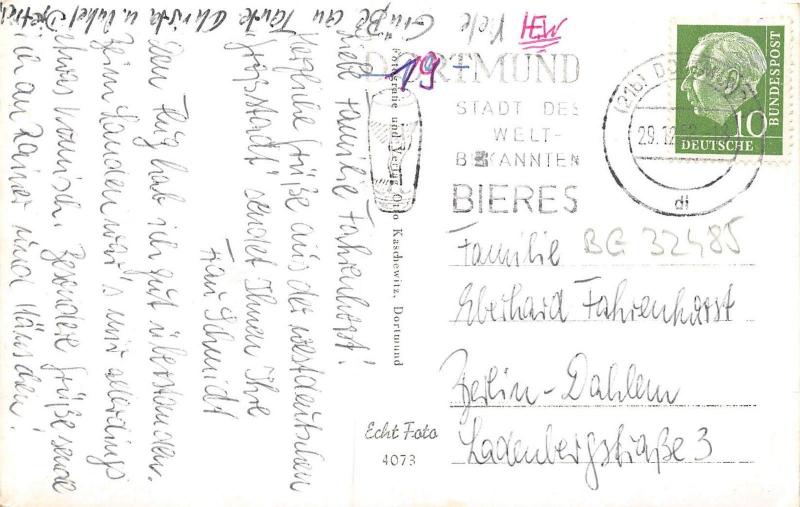 Liebe Familie Fahrenhorst!
Herzliche Grüße aus der westdeutschen
"Großstadt" sendet Ihnen Ihre
Frau Schmidt
Den Flug hab ich gut überstanden.
Beim Landen war's mir allerdings
etwas komisch. Besondere Grüße sende
ich an Rainer und Hänschen!
Viele Grüße an Tante Christa u. Onkel Dietrich
HEW
19
Fotografie und Verlag Otto Kaschewitz, Dortmund
DORTMUND
STADT DES
WELT-
BEKANNTEN
BIERES
(21b) DORTMUND
29.12.
di
10
DEUTSCHE
BUNDESPOST
BG 32485
Familie
Eberhard Fahrenhorst
Berlin-Dahlem
Ladenbergstraße 3
Echt Foto
4073